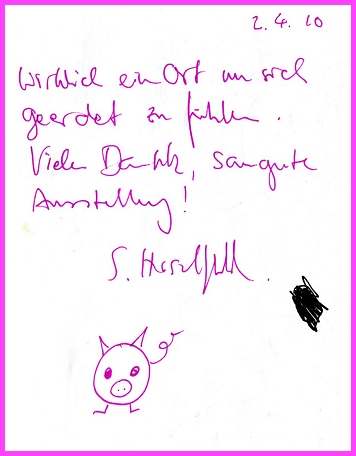 2. 4. 10
Wirklich ein Ort um sich
geerdet zu fühlen.
Vielen Dank, saugute
Ausstellung!
S.